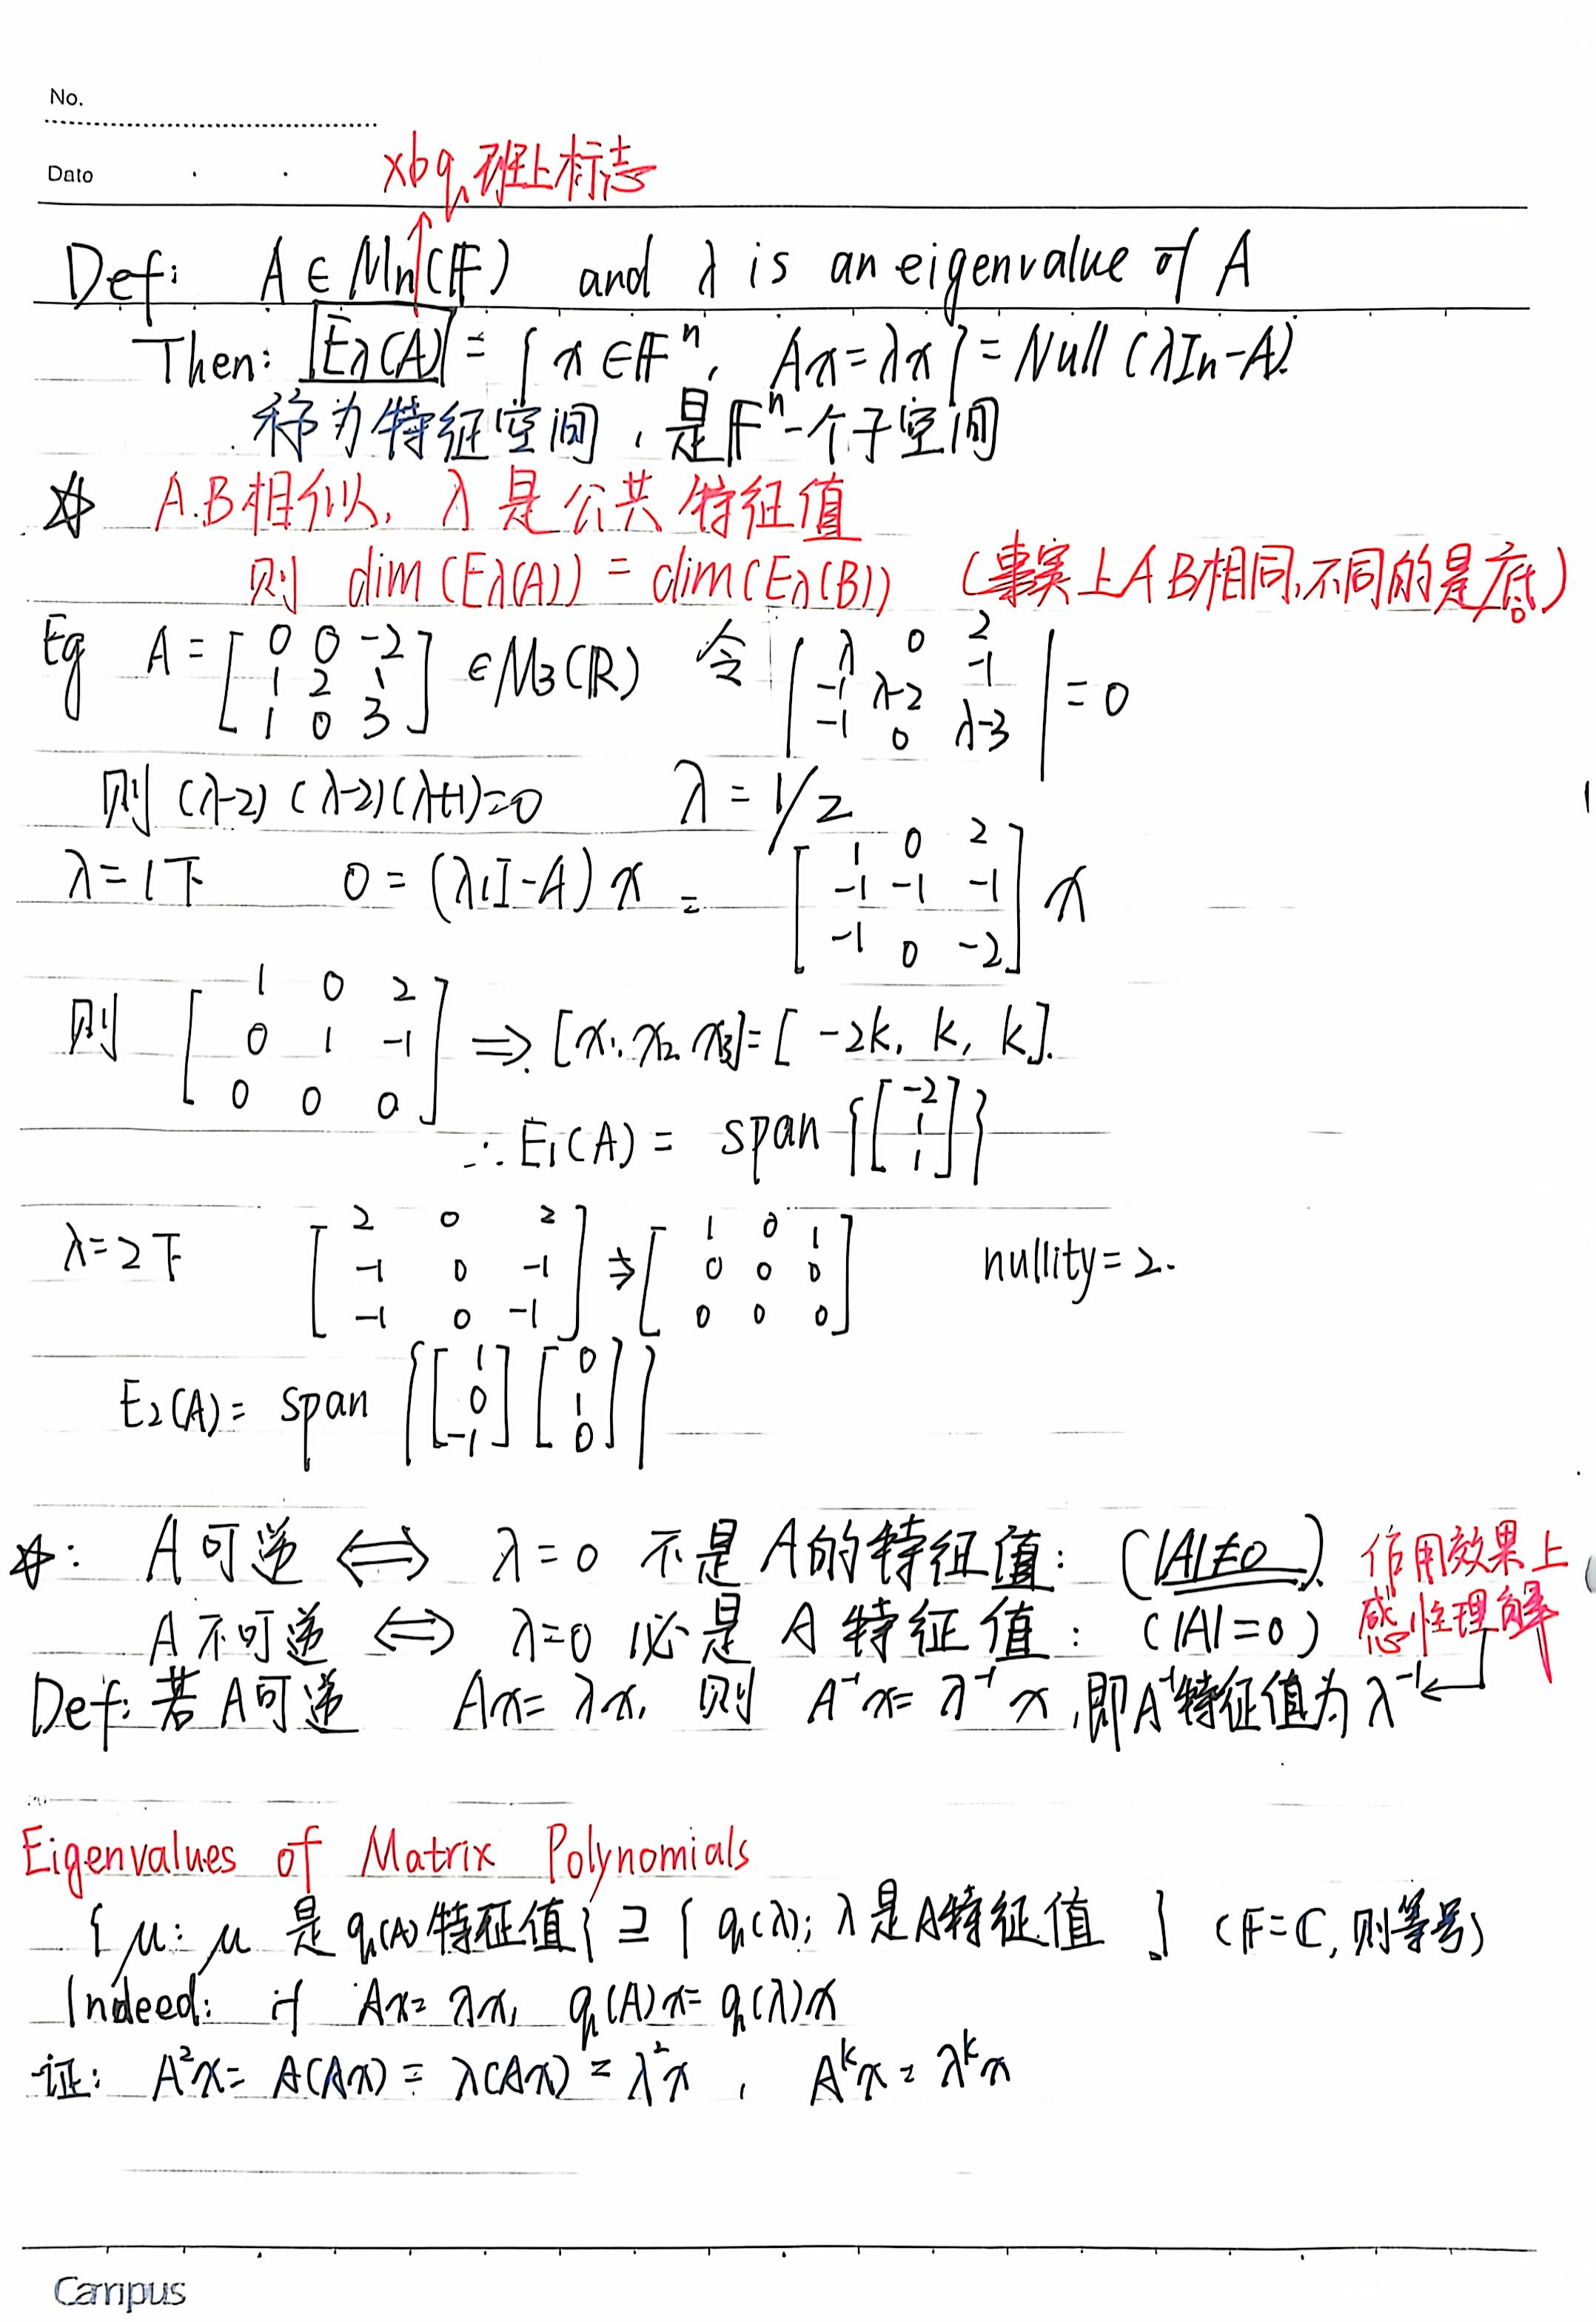 No.
Date
xbq 班上标志
Def: A ∈ Mn(F) and λ is an eigenvalue of A
Then: Eλ(A) = { x ∈ Fⁿ, Ax = λx } = Null (λIn-A).
称为特征空间,是Fⁿ一个子空间
☆ A.B相似, λ 是公共特征值
则 dim (Eλ(A)) = dim(Eλ(B)) (事实上AB相同,不同的是底)
Eg A = [ 0 0 -2 ; 1 2 1 ; 1 0 3 ] ∈ M3(R) 令 | λ 0 2 ; -1 λ-2 -1 ; -1 0 λ-3 | = 0
则 (λ-2) (λ-2)(λ+1)=0 λ = 1/2
λ=1下 0 = (λ1I-A) x = [ 1 0 2 ; -1 -1 -1 ; -1 0 -2 ] x
则 [ 1 0 2 ; 0 1 -1 ; 0 0 0 ] ⇒ [x1. x2. x3] = [ -2k, k, k ].
∴ E1(A) = span { [ -2 ; 1 ; 1 ] }
λ=2下 [ 2 0 2 ; -1 0 -1 ; -1 0 -1 ] ⇒ [ 1 0 1 ; 0 0 0 ; 0 0 0 ] nullity = 2.
E2(A) = span { [ 1 ; 0 ; -1 ] [ 0 ; 1 ; 0 ] }
☆: A可逆 ⟺ λ=0 不是A的特征值: (|A|≠0) 作用效果上
A不可逆 ⟺ λ=0 必是A特征值: (|A|=0) 感性理解
Def: 若A可逆 Ax = λx, 则 A⁻¹x = λ⁻¹x ,即A⁻¹特征值为λ⁻¹
Eigenvalues of Matrix Polynomials
{ μ: μ 是 q(A) 特征值 } ⊇ { q(λ); λ是A特征值 } (F=C, 则等号)
Indeed: if Ax = λx, q(A)x = q(λ)x
证: A²x = A(Ax) = λ(Ax) = λ²x , Aᵏx = λᵏx
Campus